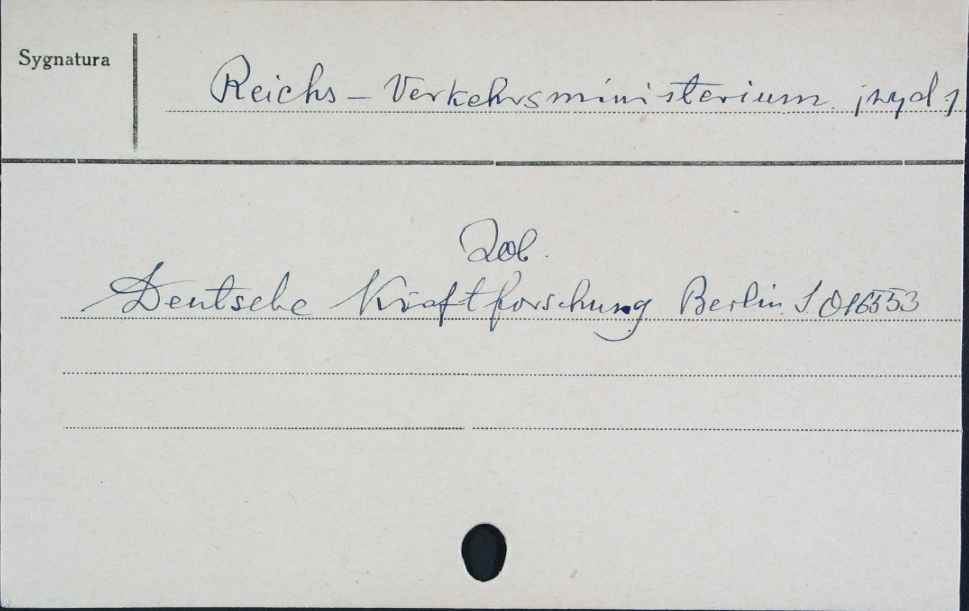 Sygnatura
Reichs-Verkehrsministerium (wyd.)
Zob.
Deutsche Kraftforschung Berlin S. 016553